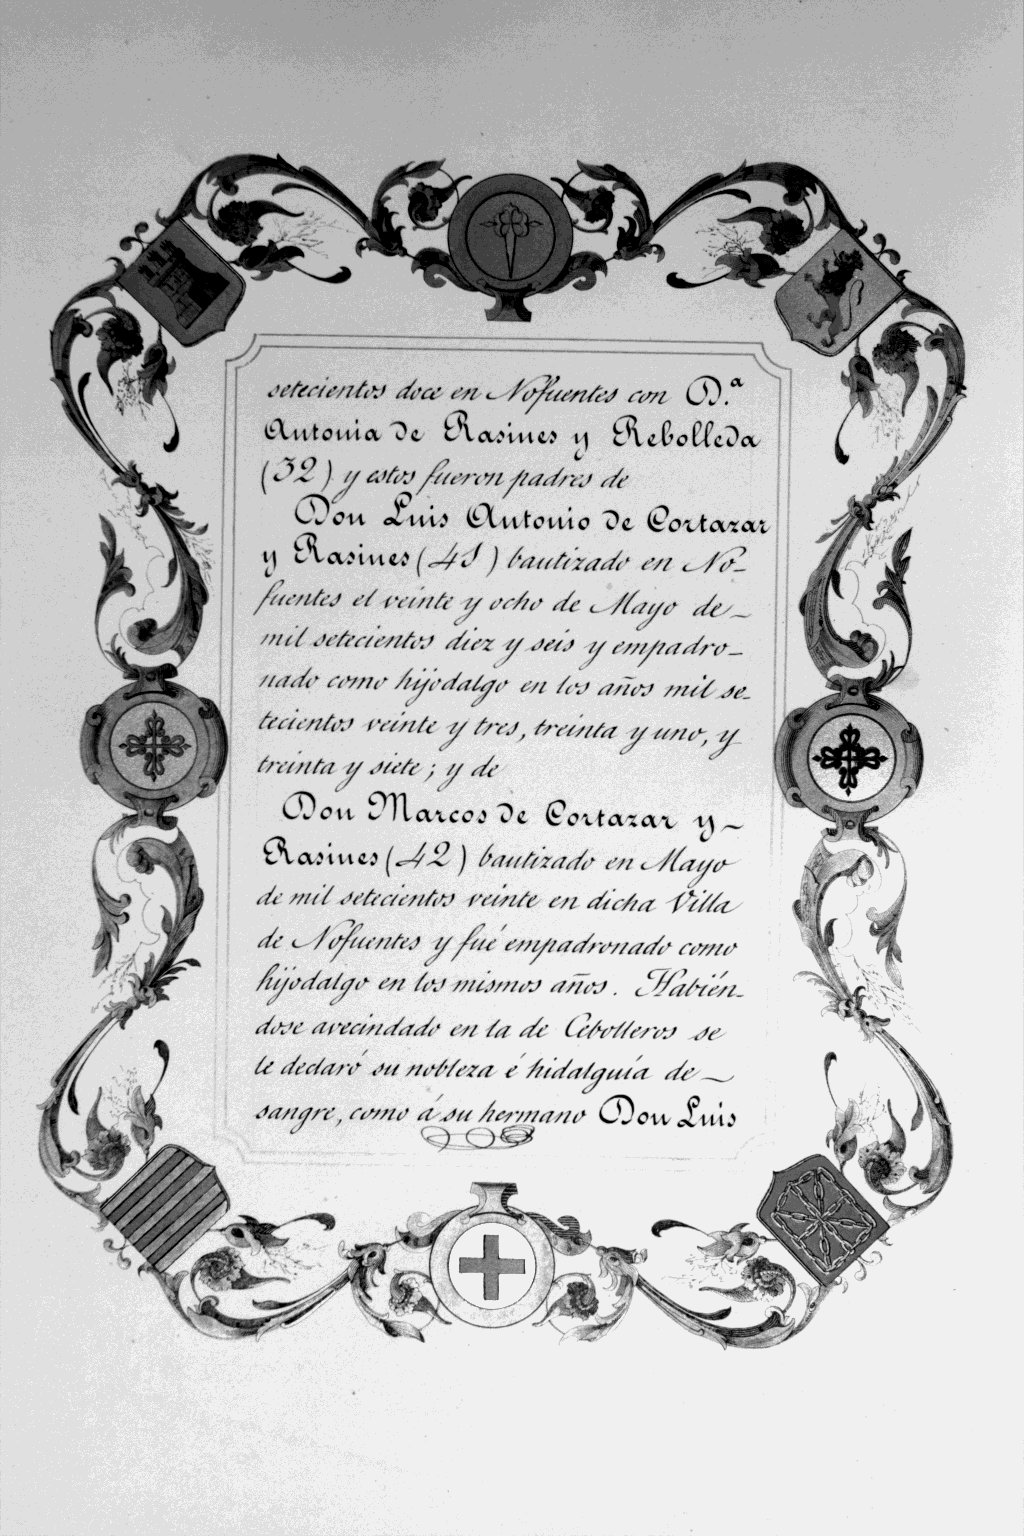 setecientos doce en Nofuentes con D.ª
Antonia de Rasines y Rebolleda
(32) y estos fueron padres de
Don Luis Antonio de Cortazar
y Rasines (41) bautizado en No-
fuentes el veinte y ocho de Mayo de
mil setecientos diez y seis y empadro-
nado como hijodalgo en los años mil se-
tecientos veinte y tres, treinta y uno, y
treinta y siete; y de
Don Marcos de Cortazar y
Rasines (42) bautizado en Mayo
de mil setecientos veinte en dicha Villa
de Nofuentes y fué empadronado como
hijodalgo en los mismos años. Habién-
dose avecindado en la de Cebolleros se
le declaró su nobleza é hidalguía de
sangre, como á su hermano Don Luis